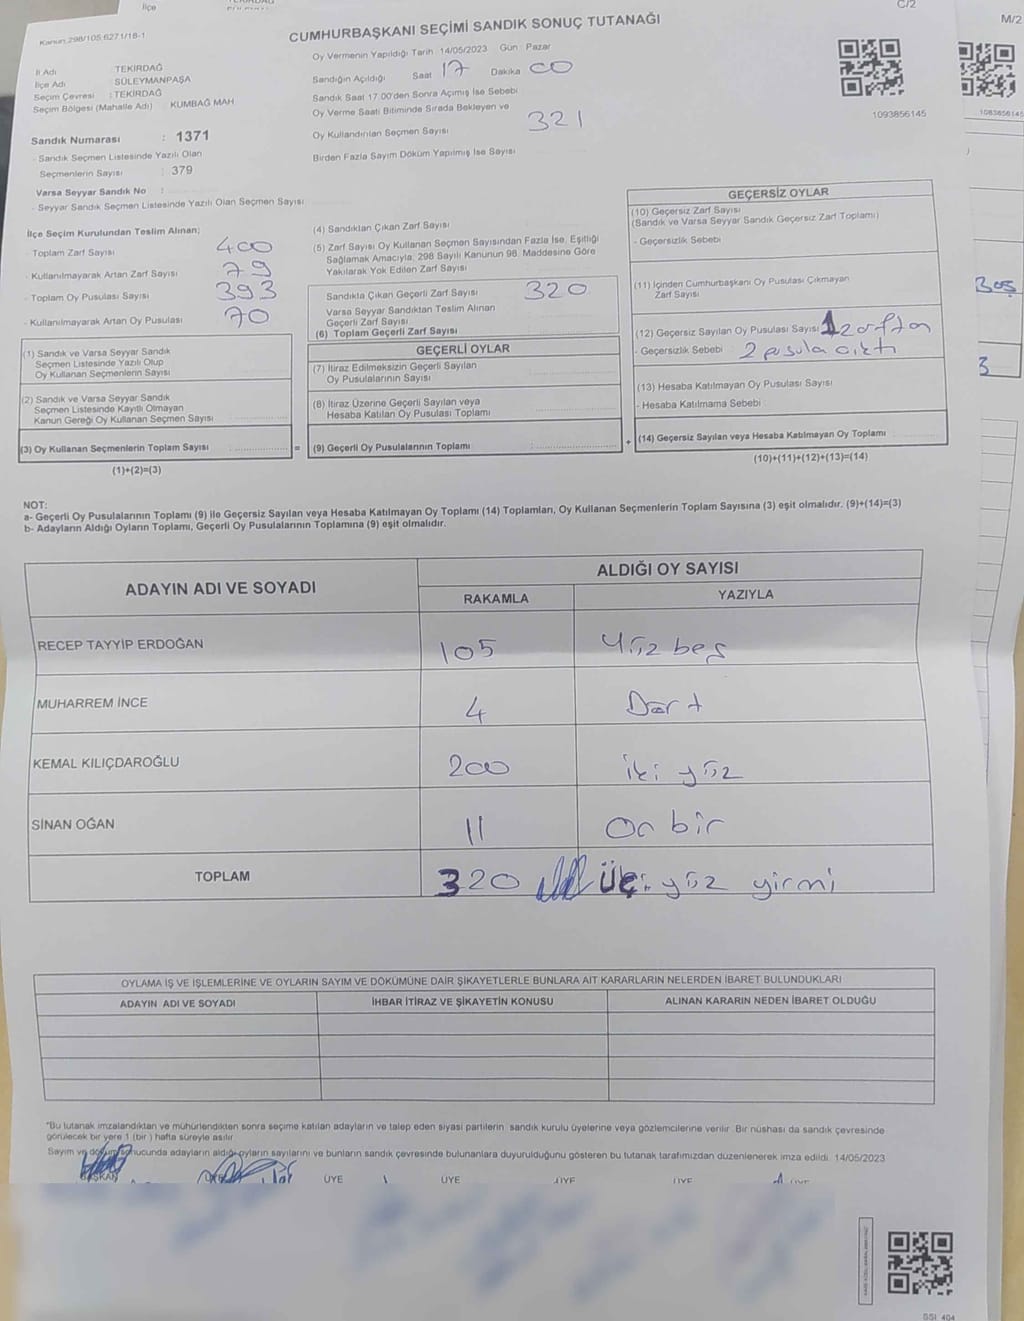 İlçe
C/2
M/2
Kanun 298/105.6271/18-1
CUMHURBAŞKANI SEÇİMİ SANDIK SONUÇ TUTANAĞI
Oy Vermenin Yapıldığı Tarih 14/05/2023 Gün : Pazar
İl Adı : TEKİRDAĞ
İlçe Adı : SÜLEYMANPAŞA
Seçim Çevresi : TEKİRDAĞ
Seçim Bölgesi (Mahalle Adı) : KUMBAĞ MAH
Sandığın Açıldığı Saat 17 Dakika 00
Sandık Saat 17.00'den Sonra Açımış İse Sebebi
Oy Verme Saati Bitiminde Sırada Bekleyen ve
Oy Kullandırılan Seçmen Sayısı 321
Birden Fazla Sayım Döküm Yapılmış İse Sayısı
1093856145
1083856145
Sandık Numarası : 1371
- Sandık Seçmen Listesinde Yazılı Olan
Seçmenlerin Sayısı : 379
Varsa Seyyar Sandık No :
- Seyyar Sandık Seçmen Listesinde Yazılı Olan Seçmen Sayısı
İlçe Seçim Kurulundan Teslim Alınan;
- Toplam Zarf Sayısı 400
- Kullanılmayarak Artan Zarf Sayısı 79
- Toplam Oy Pusulası Sayısı 393
- Kullanılmayarak Artan Oy Pusulası 70
(1) Sandık ve Varsa Seyyar Sandık
Seçmen Listesinde Yazılı Olup
Oy Kullanan Seçmenlerin Sayısı
(2) Sandık ve Varsa Seyyar Sandık
Seçmen Listesinde Kayıtlı Olmayan
Kanun Gereği Oy Kullanan Seçmen Sayısı
(3) Oy Kullanan Seçmenlerin Toplam Sayısı =
(1)+(2)=(3)
(4) Sandıktan Çıkan Zarf Sayısı
(5) Zarf Sayısı Oy Kullanan Seçmen Sayısından Fazla İse, Eşitliği
Sağlamak Amacıyla; 298 Sayılı Kanunun 98. Maddesine Göre
Yakılarak Yok Edilen Zarf Sayısı
Sandıkta Çıkan Geçerli Zarf Sayısı 320
Varsa Seyyar Sandıktan Teslim Alınan
Geçerli Zarf Sayısı
(6) Toplam Geçerli Zarf Sayısı
GEÇERLİ OYLAR
(7) İtiraz Edilmeksizin Geçerli Sayılan
Oy Pusulalarının Sayısı
(8) İtiraz Üzerine Geçerli Sayılan veya
Hesaba Katılan Oy Pusulası Toplamı
(9) Geçerli Oy Pusulalarının Toplamı : +
GEÇERSİZ OYLAR
(10) Geçersiz Zarf Sayısı
(Sandık ve Varsa Seyyar Sandık Geçersiz Zarf Toplamı)
- Geçersizlik Sebebi
(11) İçinden Cumhurbaşkanı Oy Pusulası Çıkmayan
Zarf Sayısı
(12) Geçersiz Sayılan Oy Pusulası Sayısı 1 zarftan
- Geçersizlik Sebebi 2 pusula çıktı
(13) Hesaba Katılmayan Oy Pusulası Sayısı
- Hesaba Katılmama Sebebi
(14) Geçersiz Sayılan veya Hesaba Katılmayan Oy Toplamı
(10)+(11)+(12)+(13)=(14)
3
NOT:
a- Geçerli Oy Pusulalarının Toplamı (9) ile Geçersiz Sayılan veya Hesaba Katılmayan Oy Toplamı (14) Toplamları, Oy Kullanan Seçmenlerin Toplam Sayısına (3) eşit olmalıdır. (9)+(14)=(3)
b- Adayların Aldığı Oyların Toplamı, Geçerli Oy Pusulalarının Toplamına (9) eşit olmalıdır.
ADAYIN ADI VE SOYADI
ALDIĞI OY SAYISI
RAKAMLA YAZIYLA
RECEP TAYYİP ERDOĞAN 105 Yüz beş
MUHARREM İNCE 4 Dört
KEMAL KILIÇDAROĞLU 200 iki yüz
SİNAN OĞAN 11 On bir
TOPLAM 320 üç yüz yirmi
OYLAMA İŞ VE İŞLEMLERİNE VE OYLARIN SAYIM VE DÖKÜMÜNE DAİR ŞİKAYETLERLE BUNLARA AİT KARARLARIN NELERDEN İBARET BULUNDUKLARI
ADAYIN ADI VE SOYADI İHBAR İTİRAZ VE ŞİKAYETİN KONUSU ALINAN KARARIN NEDEN İBARET OLDUĞU
*Bu tutanak imzalandıktan ve mühürlendikten sonra seçime katılan adayların ve talep eden siyasi partilerin sandık kurulu üyelerine veya gözlemcilerine verilir. Bir nüshası da sandık çevresinde
görülecek bir yere 1 (bir ) hafta süreyle asılır
Sayım ve döküm sonucunda adayların aldığı oyların sayılarını ve bunların sandık çevresinde bulunanlara duyurulduğunu gösteren bu tutanak tarafımızdan düzenlenerek imza edildi. 14/05/2023
BAŞKAN ÜYE ÜYE ÜYE ÜYE ÜYE ÜYE